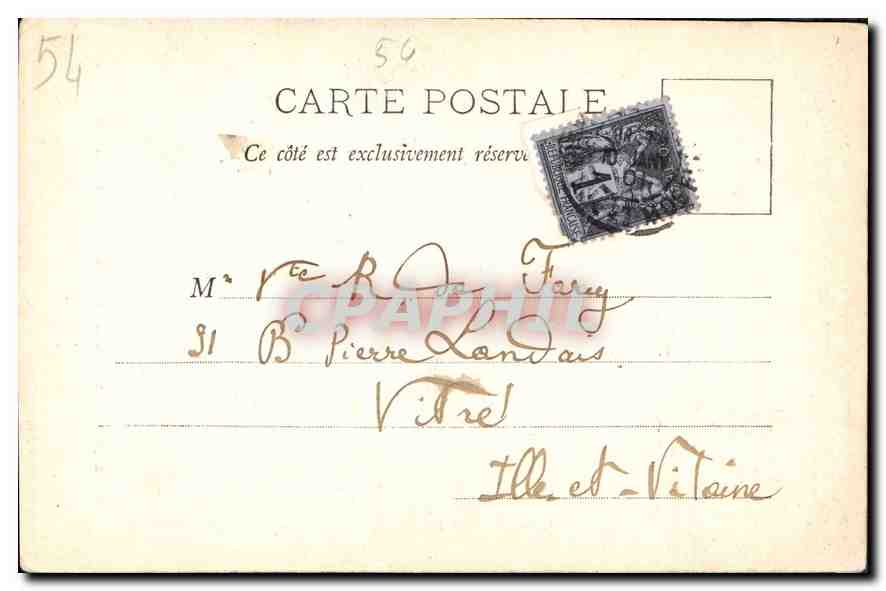 54
56
CARTE POSTALE
Ce côté est exclusivement réservé
1
RÉPUBLIQUE FRANÇAISE
Mr Vte R de Farcy
31 Bd Pierre Landais
Vitré
Ille-et-Vilaine
CPAPHIL